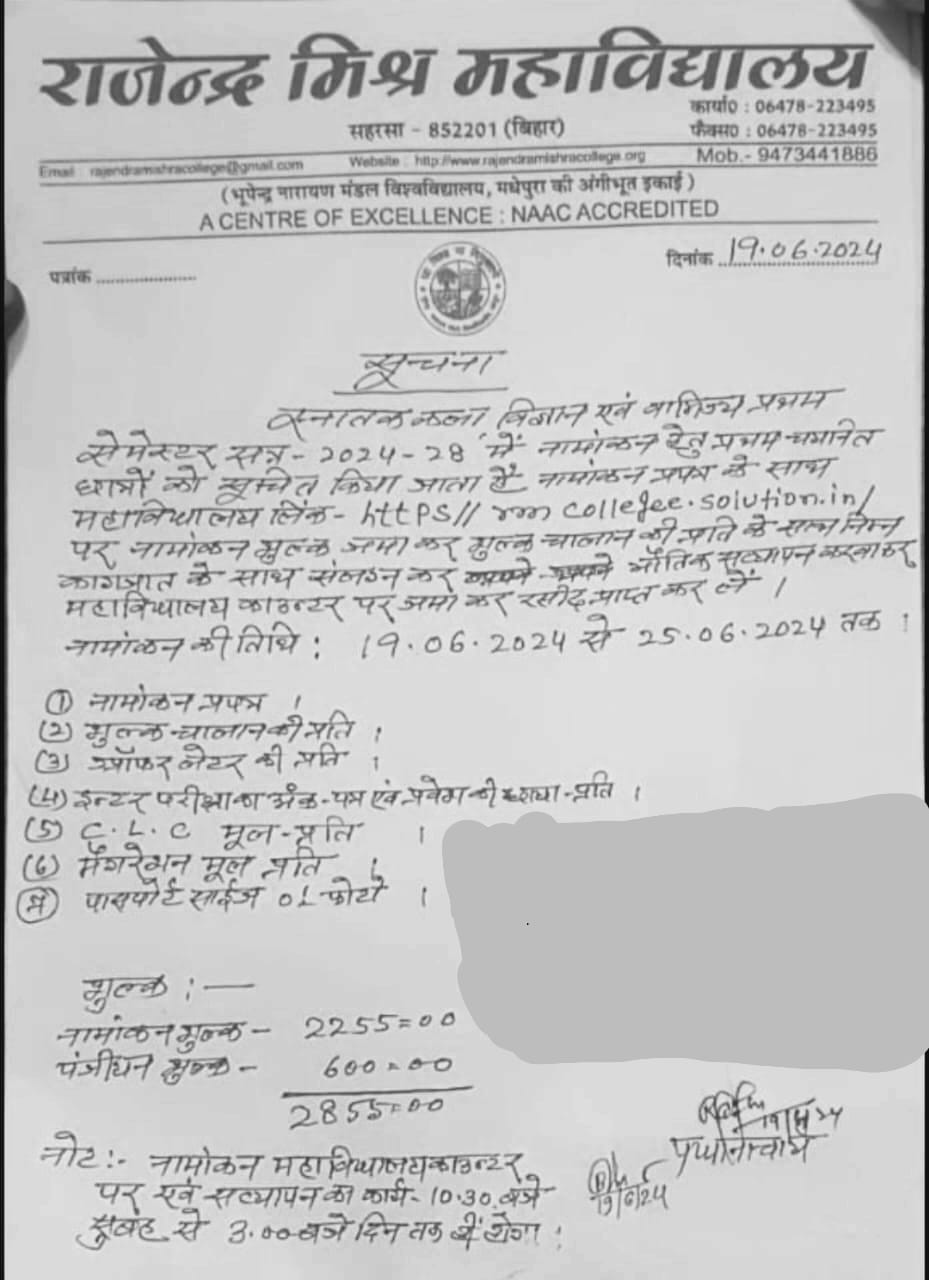 राजेन्द्र मिश्र महाविद्यालय
सहरसा - 852201 (बिहार)
कार्या0 : 06478-223495
फैक्स0 : 06478-223495
Email : rajendramishracollege@gmail.com Website : http://www.rajendramishracollege.org Mob.- 9473441886
(भूपेन्द्र नारायण मंडल विश्वविद्यालय, मधेपुरा की अंगीभूत इकाई)
A CENTRE OF EXCELLENCE : NAAC ACCREDITED
पत्रांक .................... दिनांक 19.06.2024
सूचना
स्नातक कला विज्ञान एवं वाणिज्य प्रथम
सेमेस्टर सत्र - 2024-28 में नामांकन हेतु प्रथम चयनित
छात्रों को सूचित किया जाता है नामांकन प्रपत्र के साथ
महाविद्यालय लिंक - https// rm collefee.solution.in/
पर नामांकन शुल्क जमा कर शुल्क चालान की प्रति के साथ निम्न
कागजात के साथ संलग्न कर भौतिक सत्यापन करवाकर
महाविद्यालय काउन्टर पर जमा कर रसीद प्राप्त कर लें ।
नामांकन की तिथि : 19.06.2024 से 25.06.2024 तक ।
(1) नामांकन प्रपत्र ।
(2) शुल्क चालान की प्रति ।
(3) ऑफर लेटर की प्रति ।
(4) इन्टर परीक्षा का अंक-पत्र एवं प्रवेश की छाया-प्रति ।
(5) C.L.C मूल-प्रति ।
(6) मैगरेशन मूल प्रति ।
पासपोर्ट साईज 01 फोटो ।
शुल्क :—
नामांकन शुल्क - 2255=00
पंजीयन शुल्क - 600=00
2855=00
प्रधानाचार्य
19/6/24
नोट :- नामांकन महाविद्यालय काउन्टर
पर एवं सत्यापन का कार्य - 10.30 बजे
सुबह से 3.00 बजे दिन तक ही होगा ।